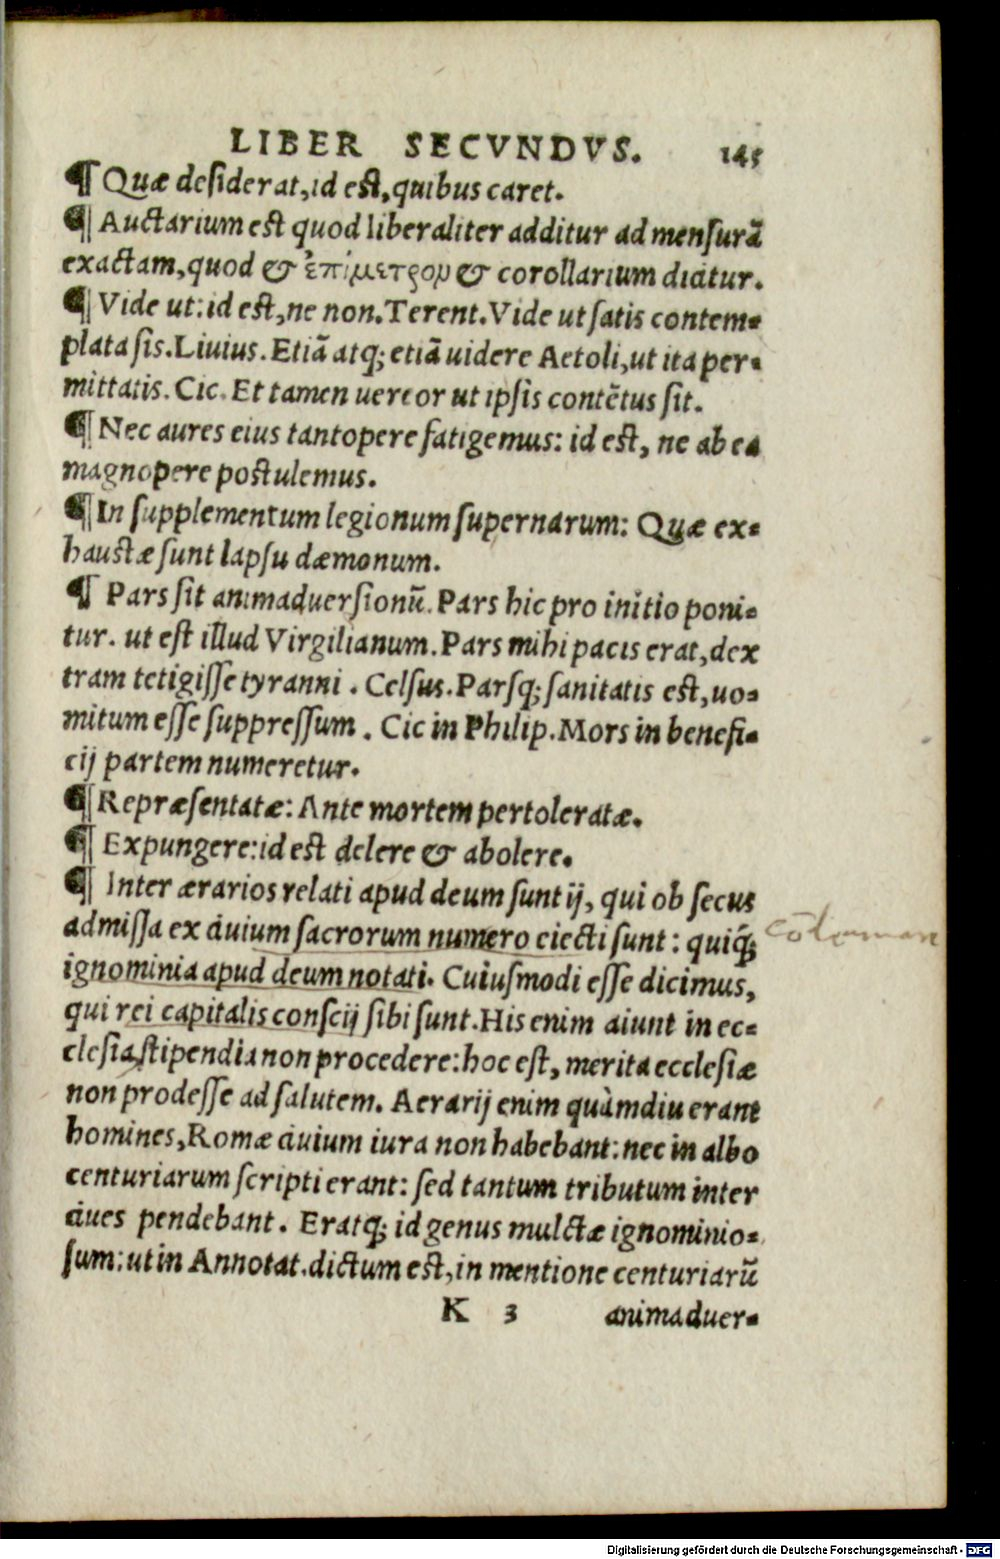 LIBER SECVNDVS. 145
¶ Quæ desiderat,id est,quibus caret.
¶ Auctarium est quod liberaliter additur ad mensurā
exactam,quod & ἐπίμετρον & corollarium dicitur.
¶ Vide ut:id est,ne non.Terent.Vide ut satis contem-
plata sis.Liuius.Etiā atq; etiā uidere Aetoli,ut ita per-
mittatis. Cic. Et tamen uereor ut ipsis contētus sit.
¶ Nec aures eius tantopere fatigemus: id est, ne ab ea
magnopere postulemus.
¶ In supplementum legionum supernarum: Quæ ex-
haustæ sunt lapsu dæmonum.
¶ Pars sit animaduersionū. Pars hic pro initio poni-
tur. ut est illud Virgilianum.Pars mihi pacis erat,dex
tram tetigisse tyranni . Celsus.Parsq; sanitatis est,uo-
mitum esse suppressum . Cic in Philip.Mors in benefi-
cij partem numeretur.
¶ Repræsentatæ: Ante mortem pertoleratæ.
¶ Expungere:id est delere & abolere.
¶ Inter ærarios relati apud deum sunt ij, qui ob secus
admissa ex ciuium sacrorum numero eiecti sunt : quiq́;
ignominia apud deum notati. Cuiusmodi esse dicimus,
qui rei capitalis conscij sibi sunt.His enim aiunt in ec-
clesia stipendia non procedere:hoc est, merita ecclesiæ
non prodesse ad salutem. Aerarij enim quàmdiu erant
homines,Romæ ciuium iura non habebant:nec in albo
centuriarum scripti erant: sed tantum tributum inter
ciues pendebant. Eratq; id genus mulctæ ignominio-
sum:ut in Annotat.dictum est,in mentione centuriarū
K 3 animaduer-
Digitalisierung gefördert durch die Deutsche Forschungsgemeinschaft - DFG